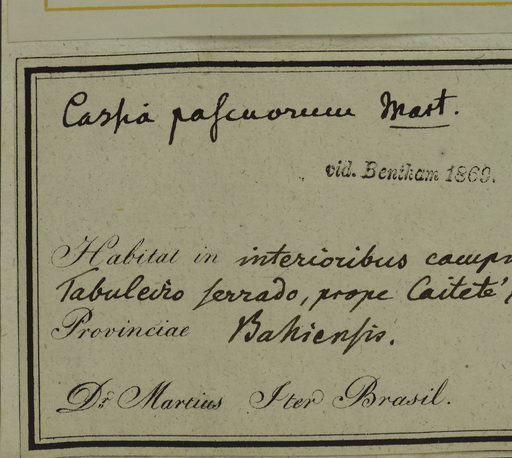 Cassia pascuorum Mart.
vid. Bentham 1869.
Habitat in interioribus camp
Tabuleiro serrado, prope Caiteté
Provinciae Bahiensis.
Dr. Martius Iter Brasil.